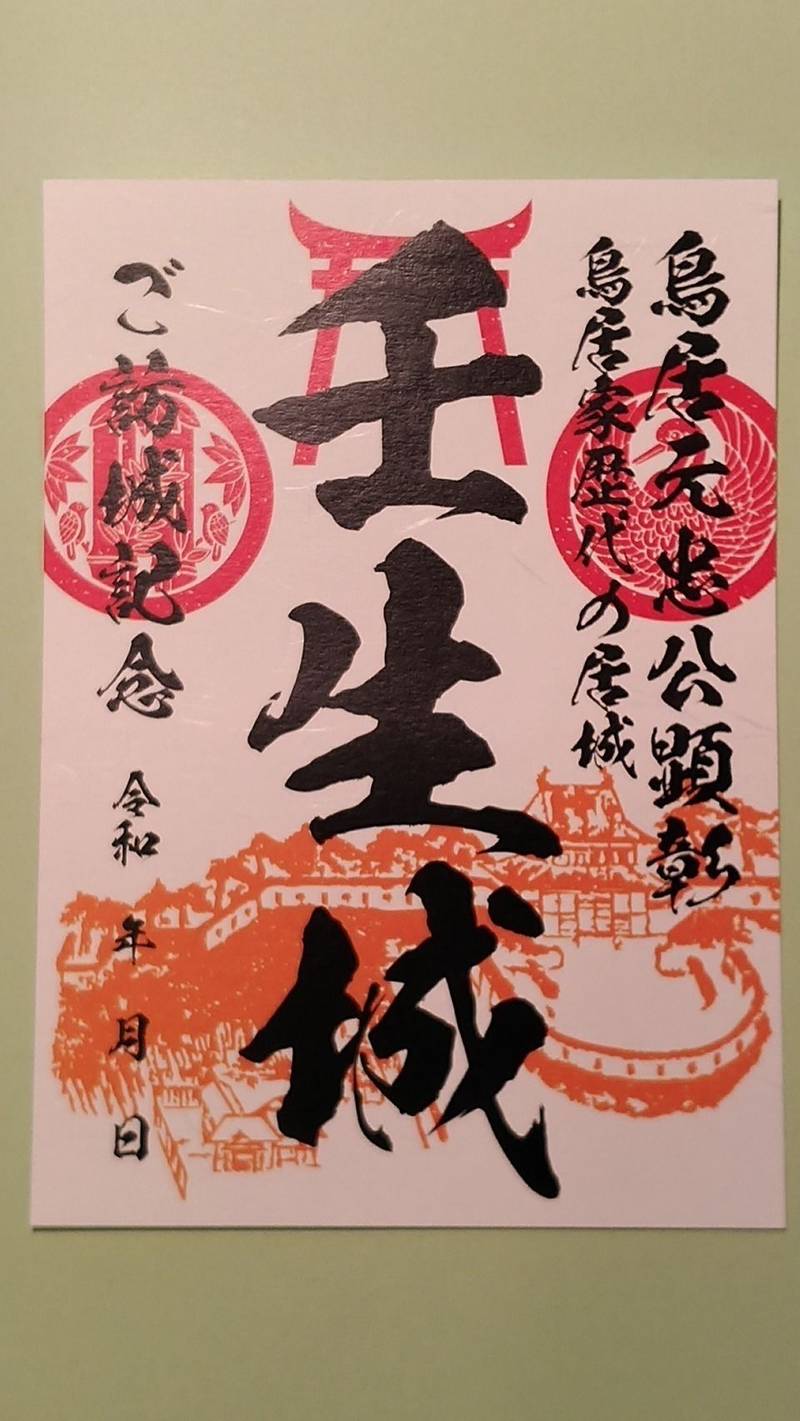 鳥居元忠公顕彰
鳥居家歴代の居城
壬生城
ご訪城記念 令和 年 月 日